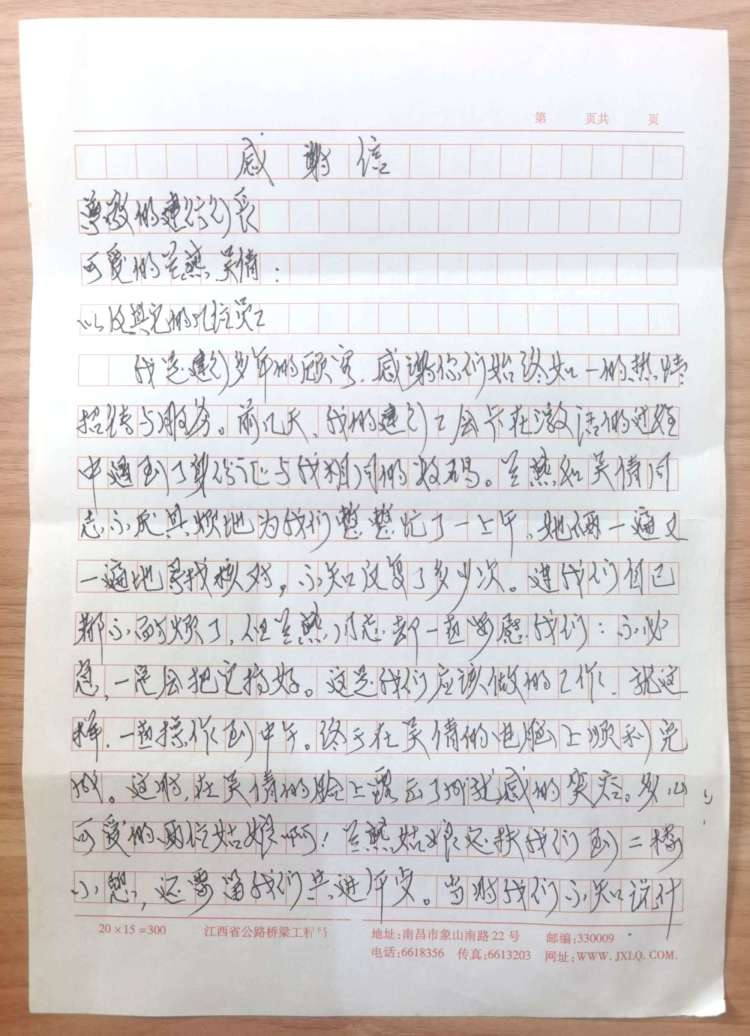 第 页共 页
感谢信
尊敬的建行行长
可爱的兰燕吴倩：
以及其它的几位员工
我是建行多年的顾客，感谢你们始终如一的热情
招待与服务。前几天，我的建行工会卡在激活的过程
中遇到了身份证与我相同的数码。兰燕和吴倩同
志不厌其烦地为我们整整忙了一上午，她俩一遍又
一遍地寻找核对，不知反复了多少次。连我们自己
都不耐烦了，但兰燕同志却一直安慰我们：不必
急，一定会把它搞好。这是我们应该做的工作，就这
样，一直操作到中午。终于在吴倩的电脑上顺利完
成。这时，在吴倩的脸上露出了成就感的笑容。多么
可爱的两位姑娘啊！兰燕姑娘还扶我们到二楼
小憩，还要留我们共进午宴。当时我们不知说什
20×15=300 江西省公路桥梁工程 地址：南昌市象山南路22号 邮编：330009
电话：6618356 传真：6613203 网址：WWW.JXLQ.COM.